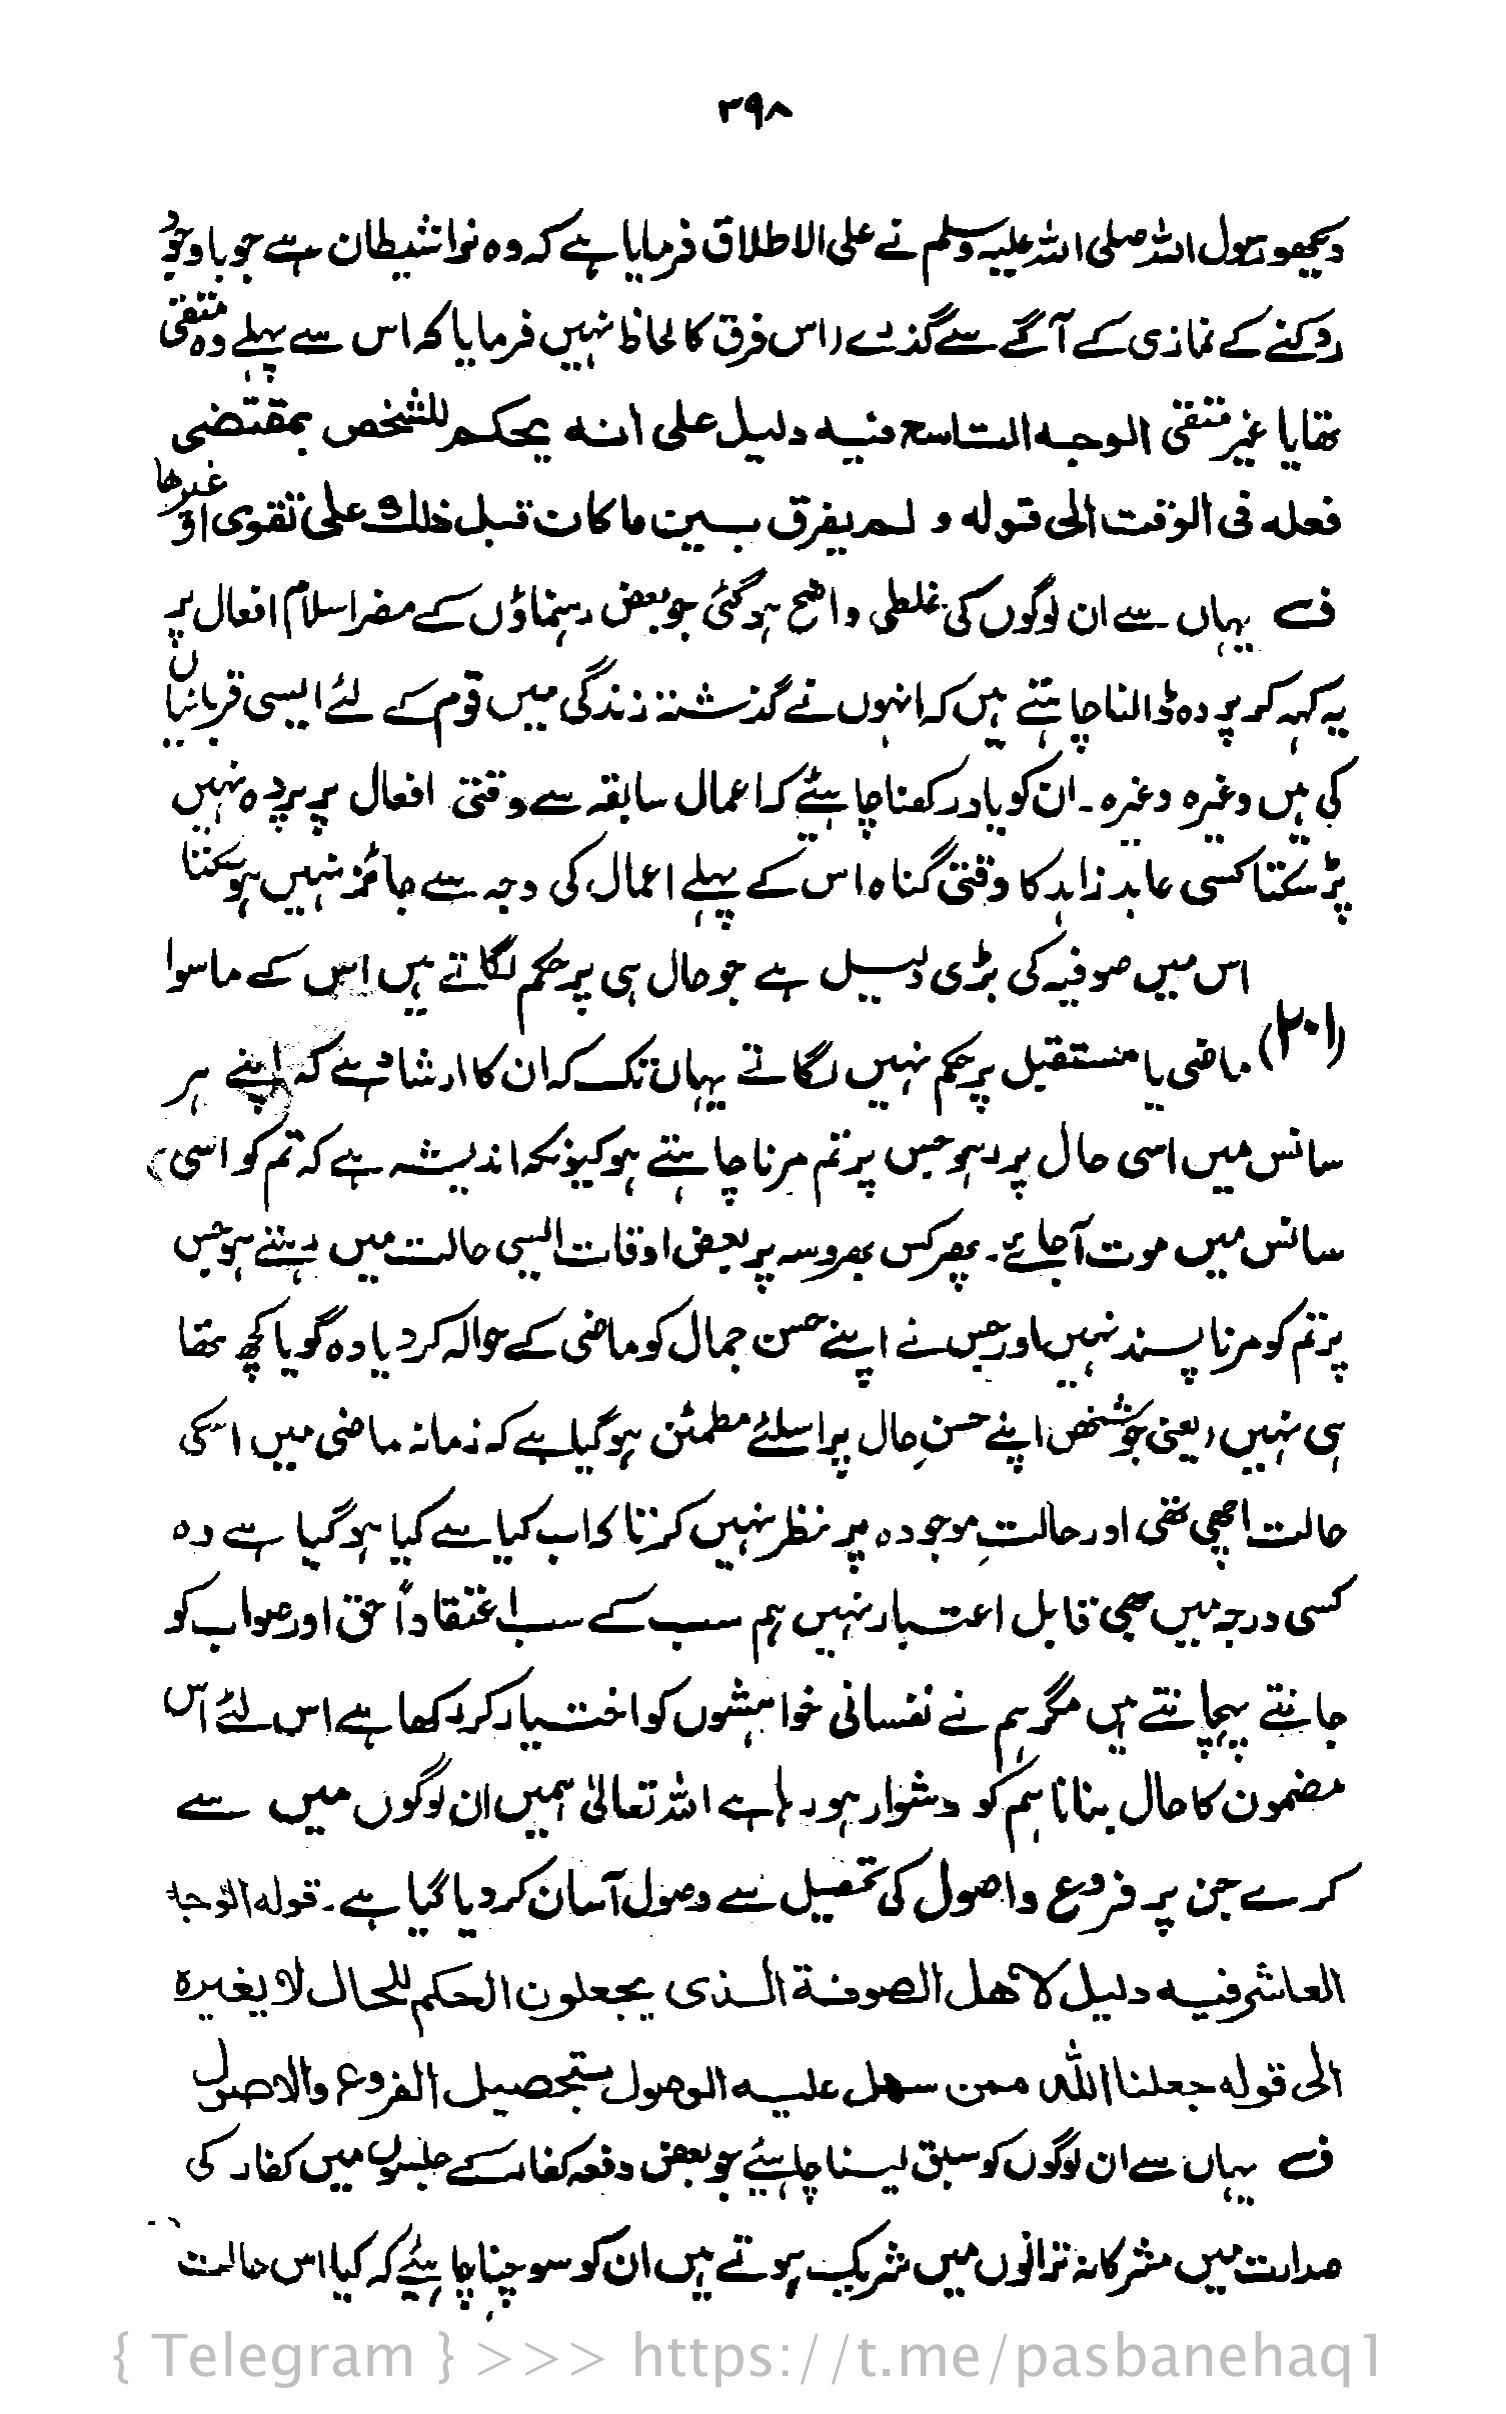 ۳۹۸
دیکھو رسول اللہ صلی اللہ علیہ وسلم نے علی الاطلاق فرمایا ہے کہ وہ نرا شیطان ہے جو باوجود
روکنے کے نمازی کے آگے سے گذرے (اس فرق کا لحاظ نہیں فرمایا کہ اس سے پہلے وہ متقی
تھا یا غیر متقی الوجہ التاسع فیہ دلیل علی انہ یحکم للشخص بمقتضی
فعلہ فی الوقت الی قولہ و لم یفرق بین ما کان قبل ذلک علی تقوی او غیرھا
ف یہاں سے ان لوگوں کی غلطی واضح ہوگئی جو بعض رہنماؤں کے مضر اسلام افعال پر
یہ کہہ کر پردہ ڈالنا چاہتے ہیں کہ انہوں نے گذشتہ زندگی میں قوم کے لئے ایسی قربانیاں
کی ہیں وغیرہ وغیرہ ۔ ان کو یاد رکھنا چاہئے کہ اعمال سابقہ سے وقتی افعال پر پردہ نہیں
پڑ سکتا کسی عابد زاہد کا وقتی گناہ اس کے پہلے اعمال کی وجہ سے جائز نہیں ہوسکتا
اس میں صوفیہ کی بڑی دلیل ہے جو حال ہی پر حکم لگاتے ہیں اس کے ماسوا
(۲۰۱) ماضی یا مستقبل پر حکم نہیں لگاتے یہاں تک کہ ان کا ارشاد ہے کہ اپنے ہر
سانس میں اسی حال پر رہو جس پر تم مرنا چاہتے ہو کیونکہ اندیشہ ہے کہ تم کو اسی
سانس میں موت آجائے ۔ پھر کس بھروسہ پر بعض اوقات ایسی حالت میں رہتے ہو جس
پر تم کو مرنا پسند نہیں اور جس نے اپنے حسن جمال کو ماضی کے حوالہ کردیا وہ گویا کچھ تھا
ہی نہیں (یعنی جو شخص اپنے حسنِ حال پر اسلئے مطمئن ہوگیا ہے کہ زمانہ ماضی میں اسکی
حالت اچھی تھی اور حالتِ موجودہ پر نظر نہیں کرتا کہ اب کیا سے کیا ہوگیا ہے وہ
کسی درجہ میں بھی قابل اعتبار نہیں ہم سب کے سب اعتقاداً حق اور صواب کو
جانتے پہچانتے ہیں مگر ہم نے نفسانی خواہشوں کو اختیار کر رکھا ہے اس لئے اس
مضمون کا حال بنانا ہم کو دشوار ہو رہا ہے اللہ تعالیٰ ہمیں ان لوگوں میں سے
کرے جن پر فروع و اصول کی تحصیل سے وصول آسان کردیا گیا ہے ۔ قولہ الوجہ
العاشر فیہ دلیل لاھل الصوفة الذی یجعلون الحکم للحال لا یغیرہ
الی قولہ جعلنا اللہ ممن سھل علیہ الوصول بتحصیل الفروع والاصول
ف یہاں سے ان لوگوں کو سبق لینا چاہئیے جو بعض دفعہ کفار کے جلسوں میں کفار کی
صدارت میں مشرکانہ ترانوں میں شریک ہوتے ہیں ان کو سوچنا چاہئیے کہ کیا اس حالت
{ Telegram } >>> https://t.me/pasbanehaq1